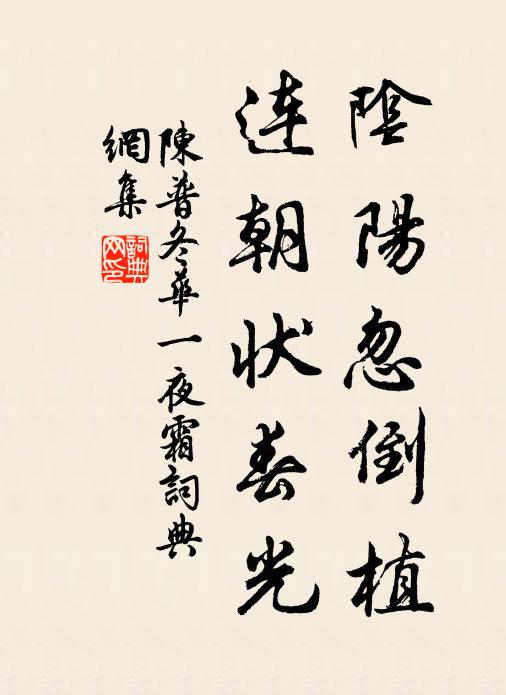 陰陽忽倒植
連朝状春光
陳普冬華一夜霜詞典
網集
詞典網印